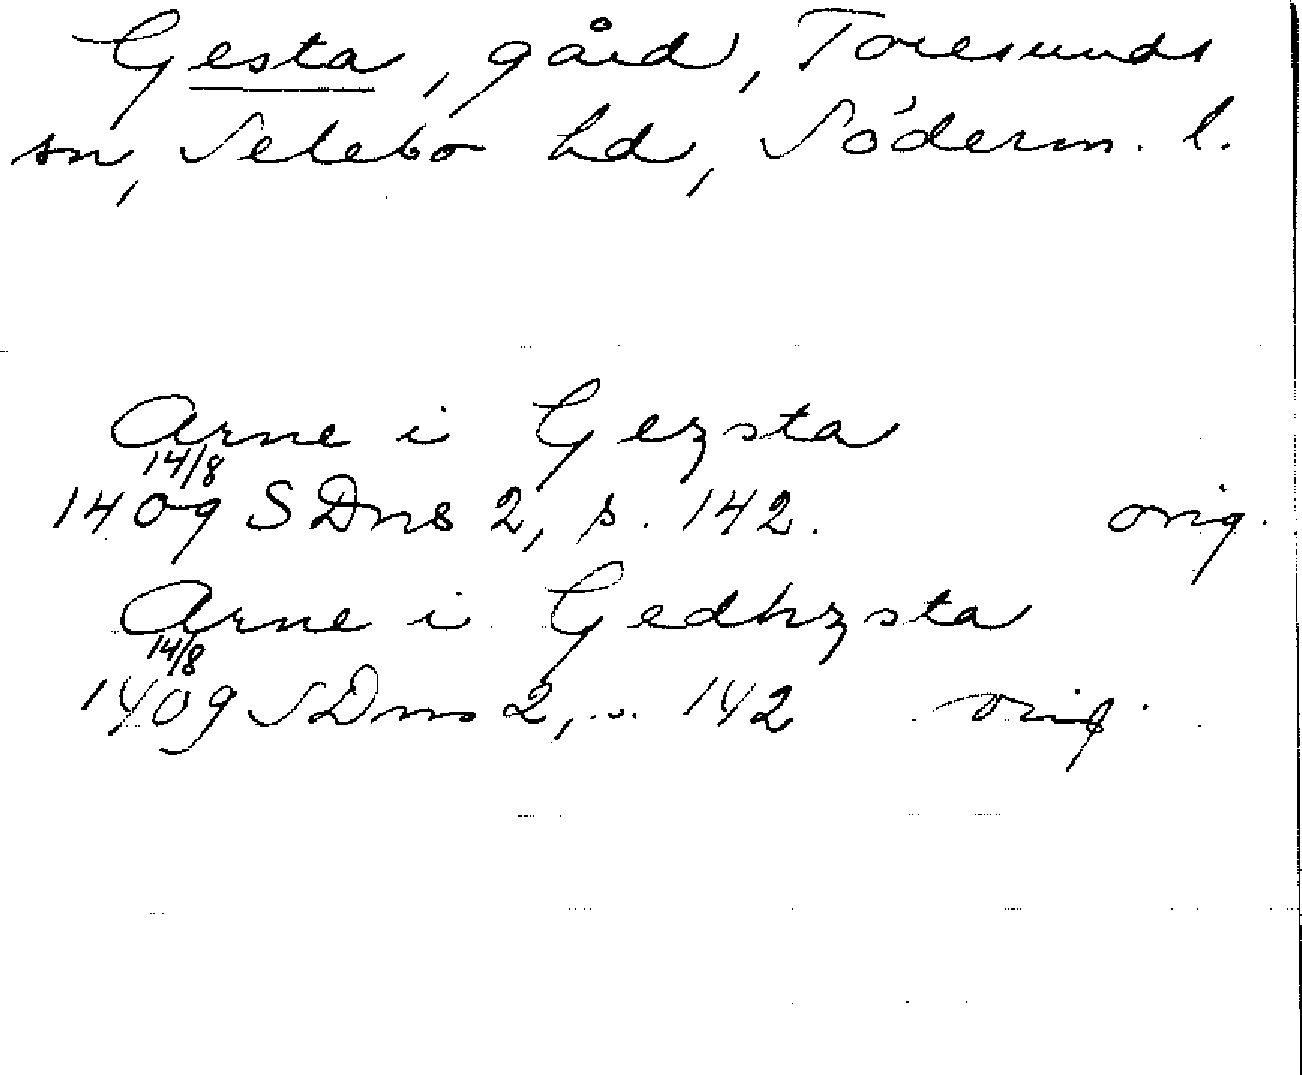 Gesta, gård, Toresunds
sn, Selebo hd, Söderm. l.
Arne i Gezsta
14/8
1409 SDns 2, s. 142. orig.
Arne i Gedhzsta
14/8
1409 SDns 2, s. 142 orig.